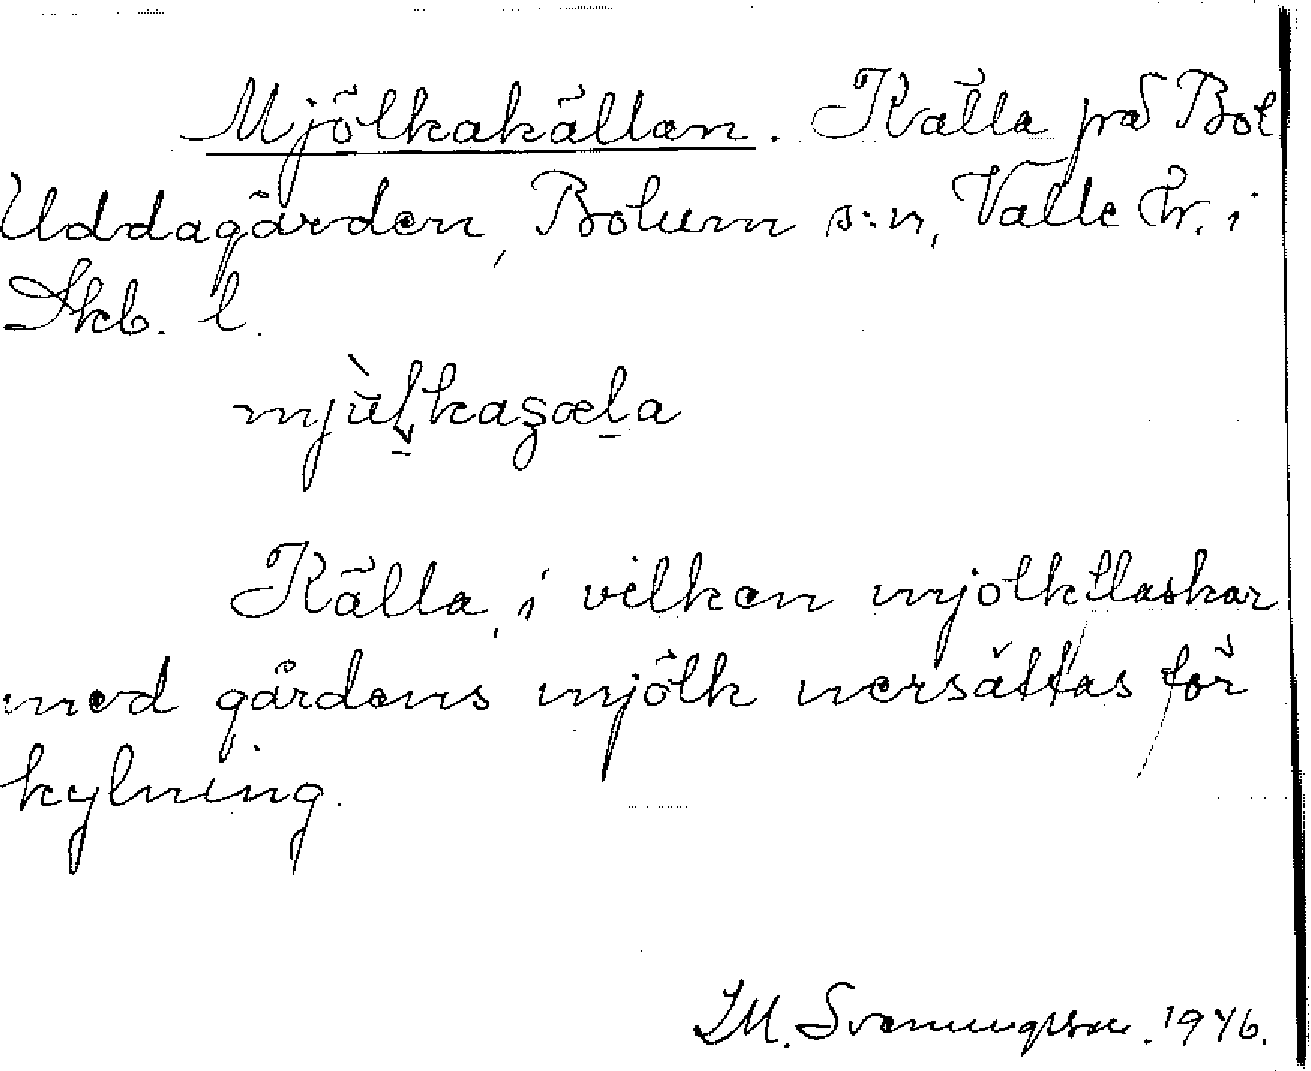 Mjölkakällan. Källa på Bol
Uddagården, Bolum s:n, Valle hr. i
Skb. l.
Källa, i vilken mjölkflaskar
med gårdens mjölk nersättas för
kylning.
1946.